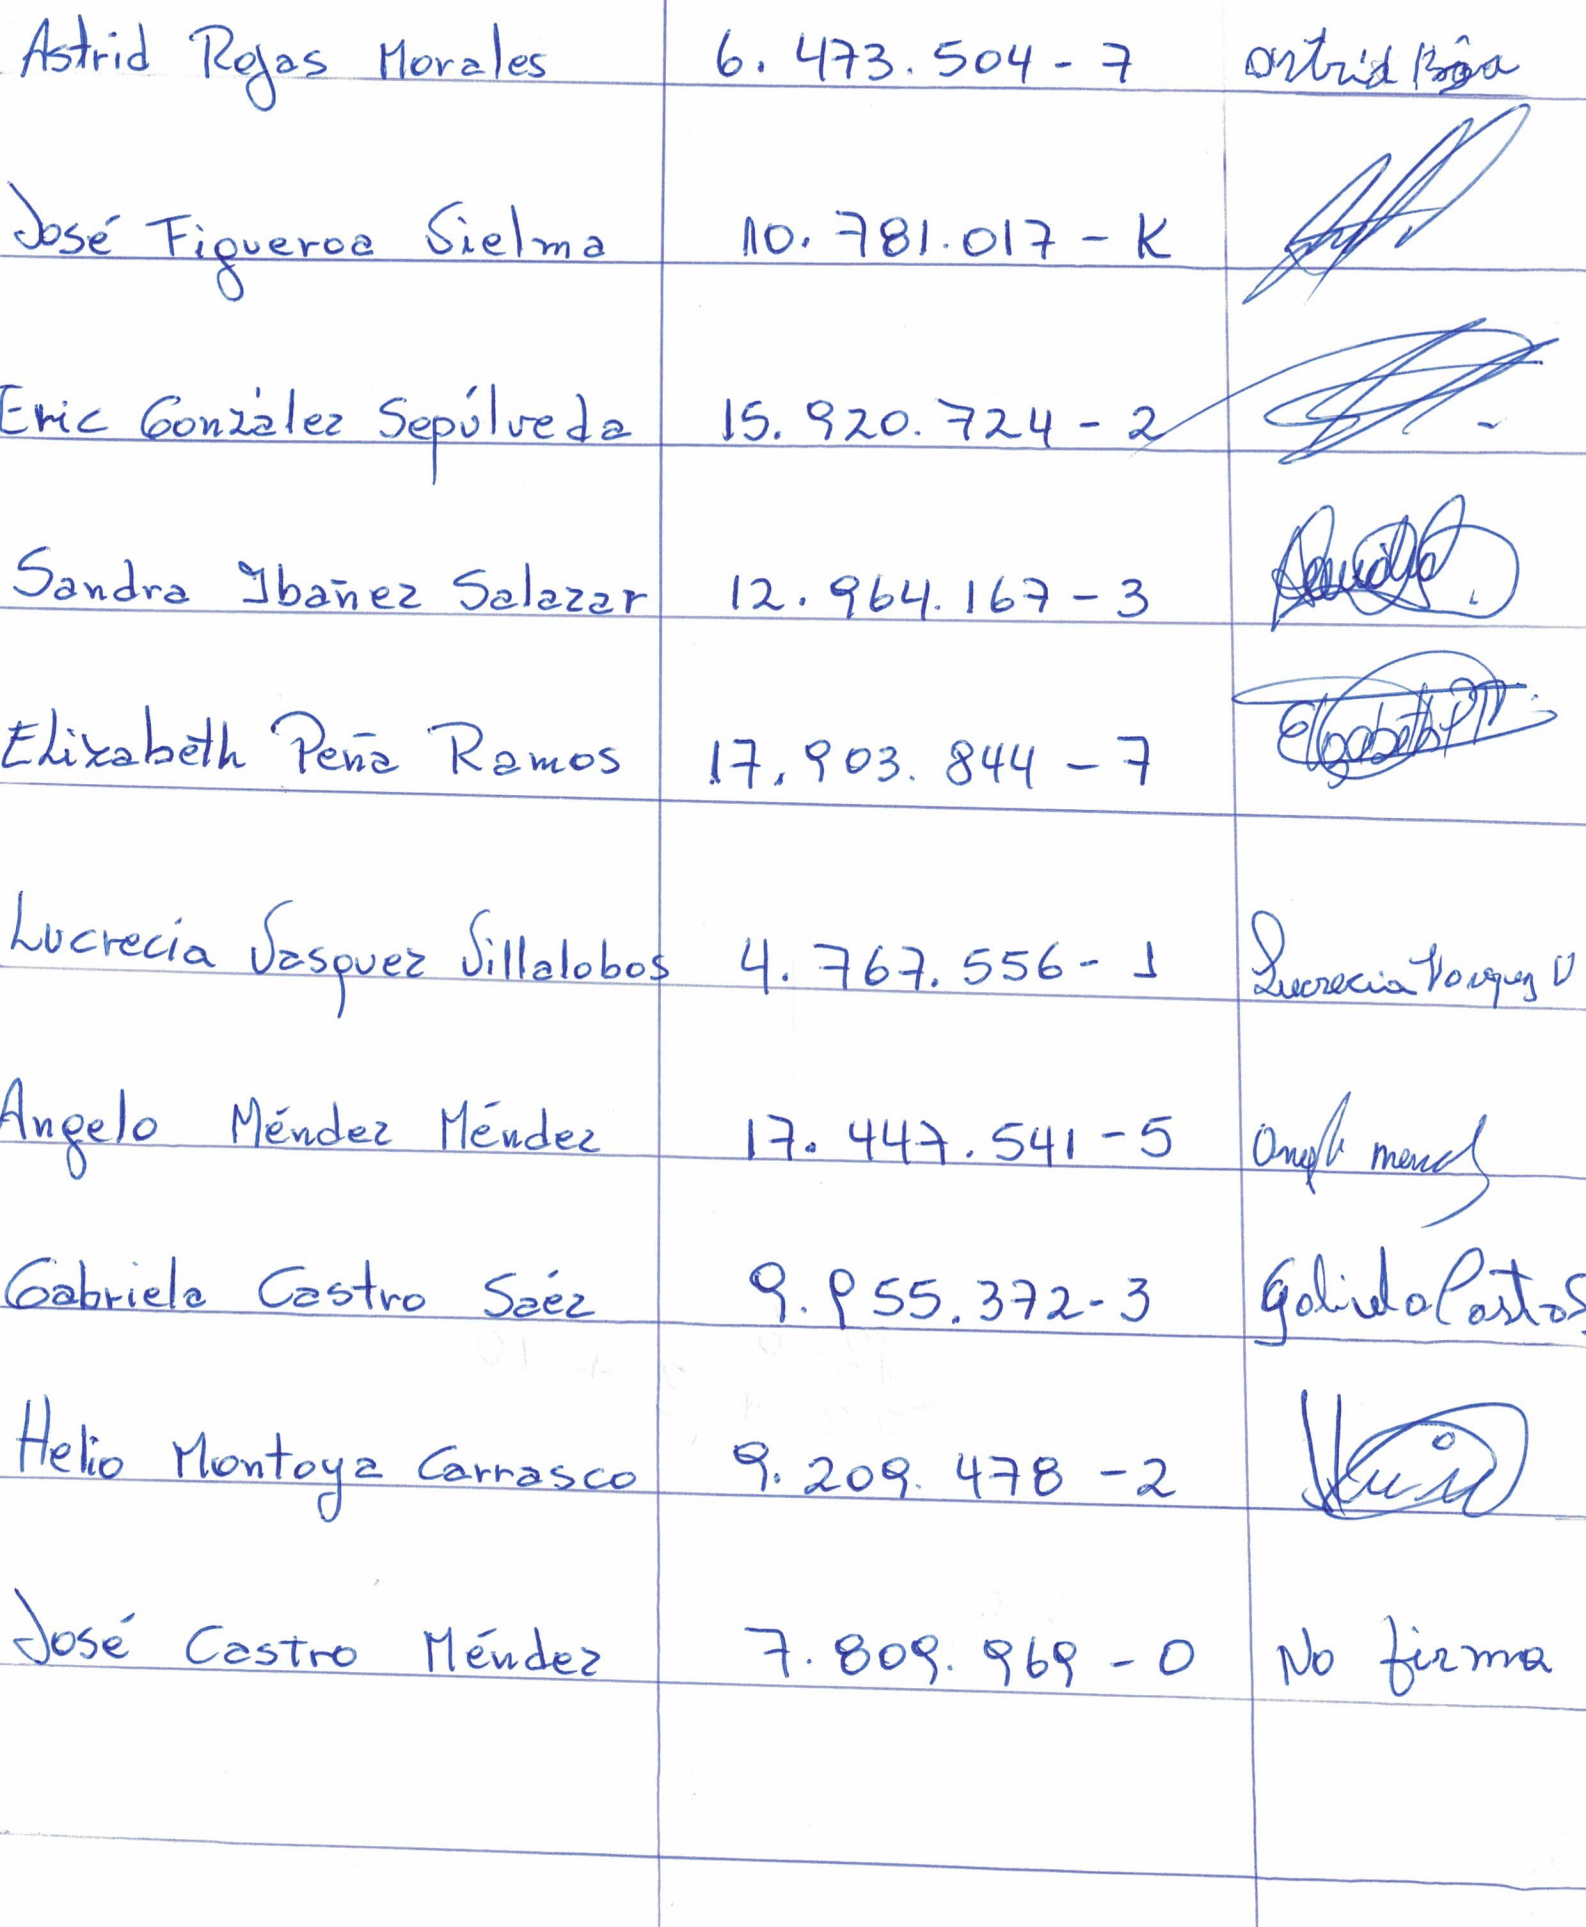 Astrid Rojas Morales 6.473.504-7 Astrid Roja
José Figueroa Sielma 10.781.017-K
Eric González Sepúlveda 15.920.724-2
Sandra Ibañez Salazar 12.964.167-3
Elizabeth Peña Ramos 17.903.844-7
Lucrecia Vasquez Villalobos 4.767.556-1 Lucrecia Vasquez V
Angelo Méndez Méndez 17.447.541-5
Gabriela Castro Sáez 9.955.372-3 Gabriela Castro S
Helio Montoya Carrasco 9.209.478-2
José Castro Méndez 7.809.969-0 No firma